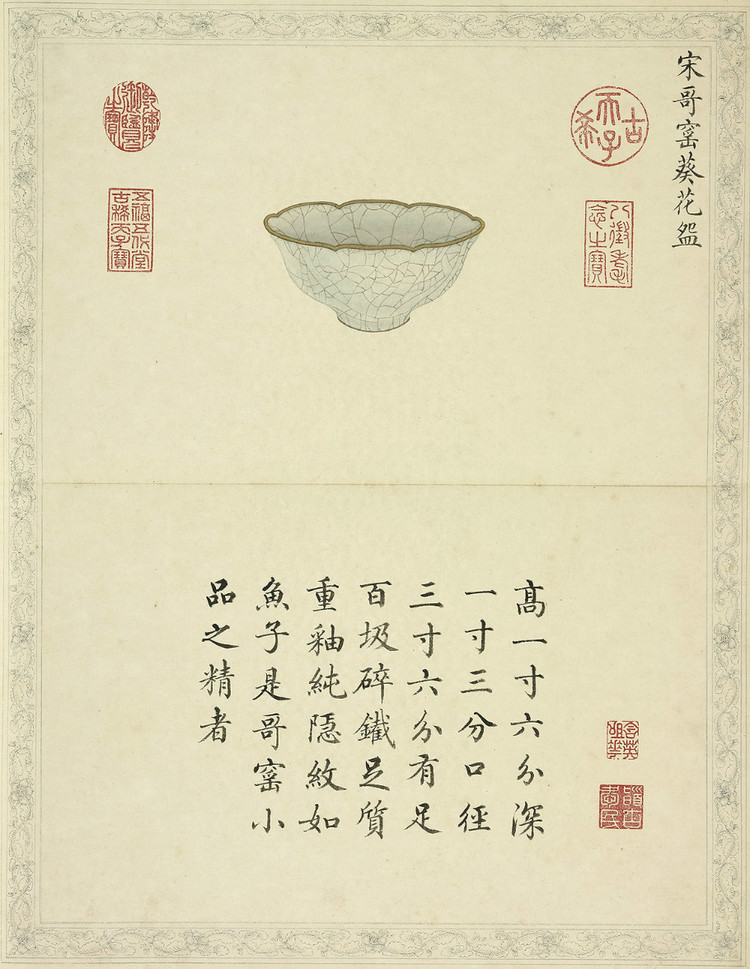 宋哥窰葵花盌
古希天子
八徵耄念之寶
乾隆御覽之寶
五福五代堂
古稀天子寶
髙一寸六分深
一寸三分口徑
三寸六分有足
百圾碎鐵足質
重釉純隱紋如
魚子是哥窰小
品之精者
含英
咀華